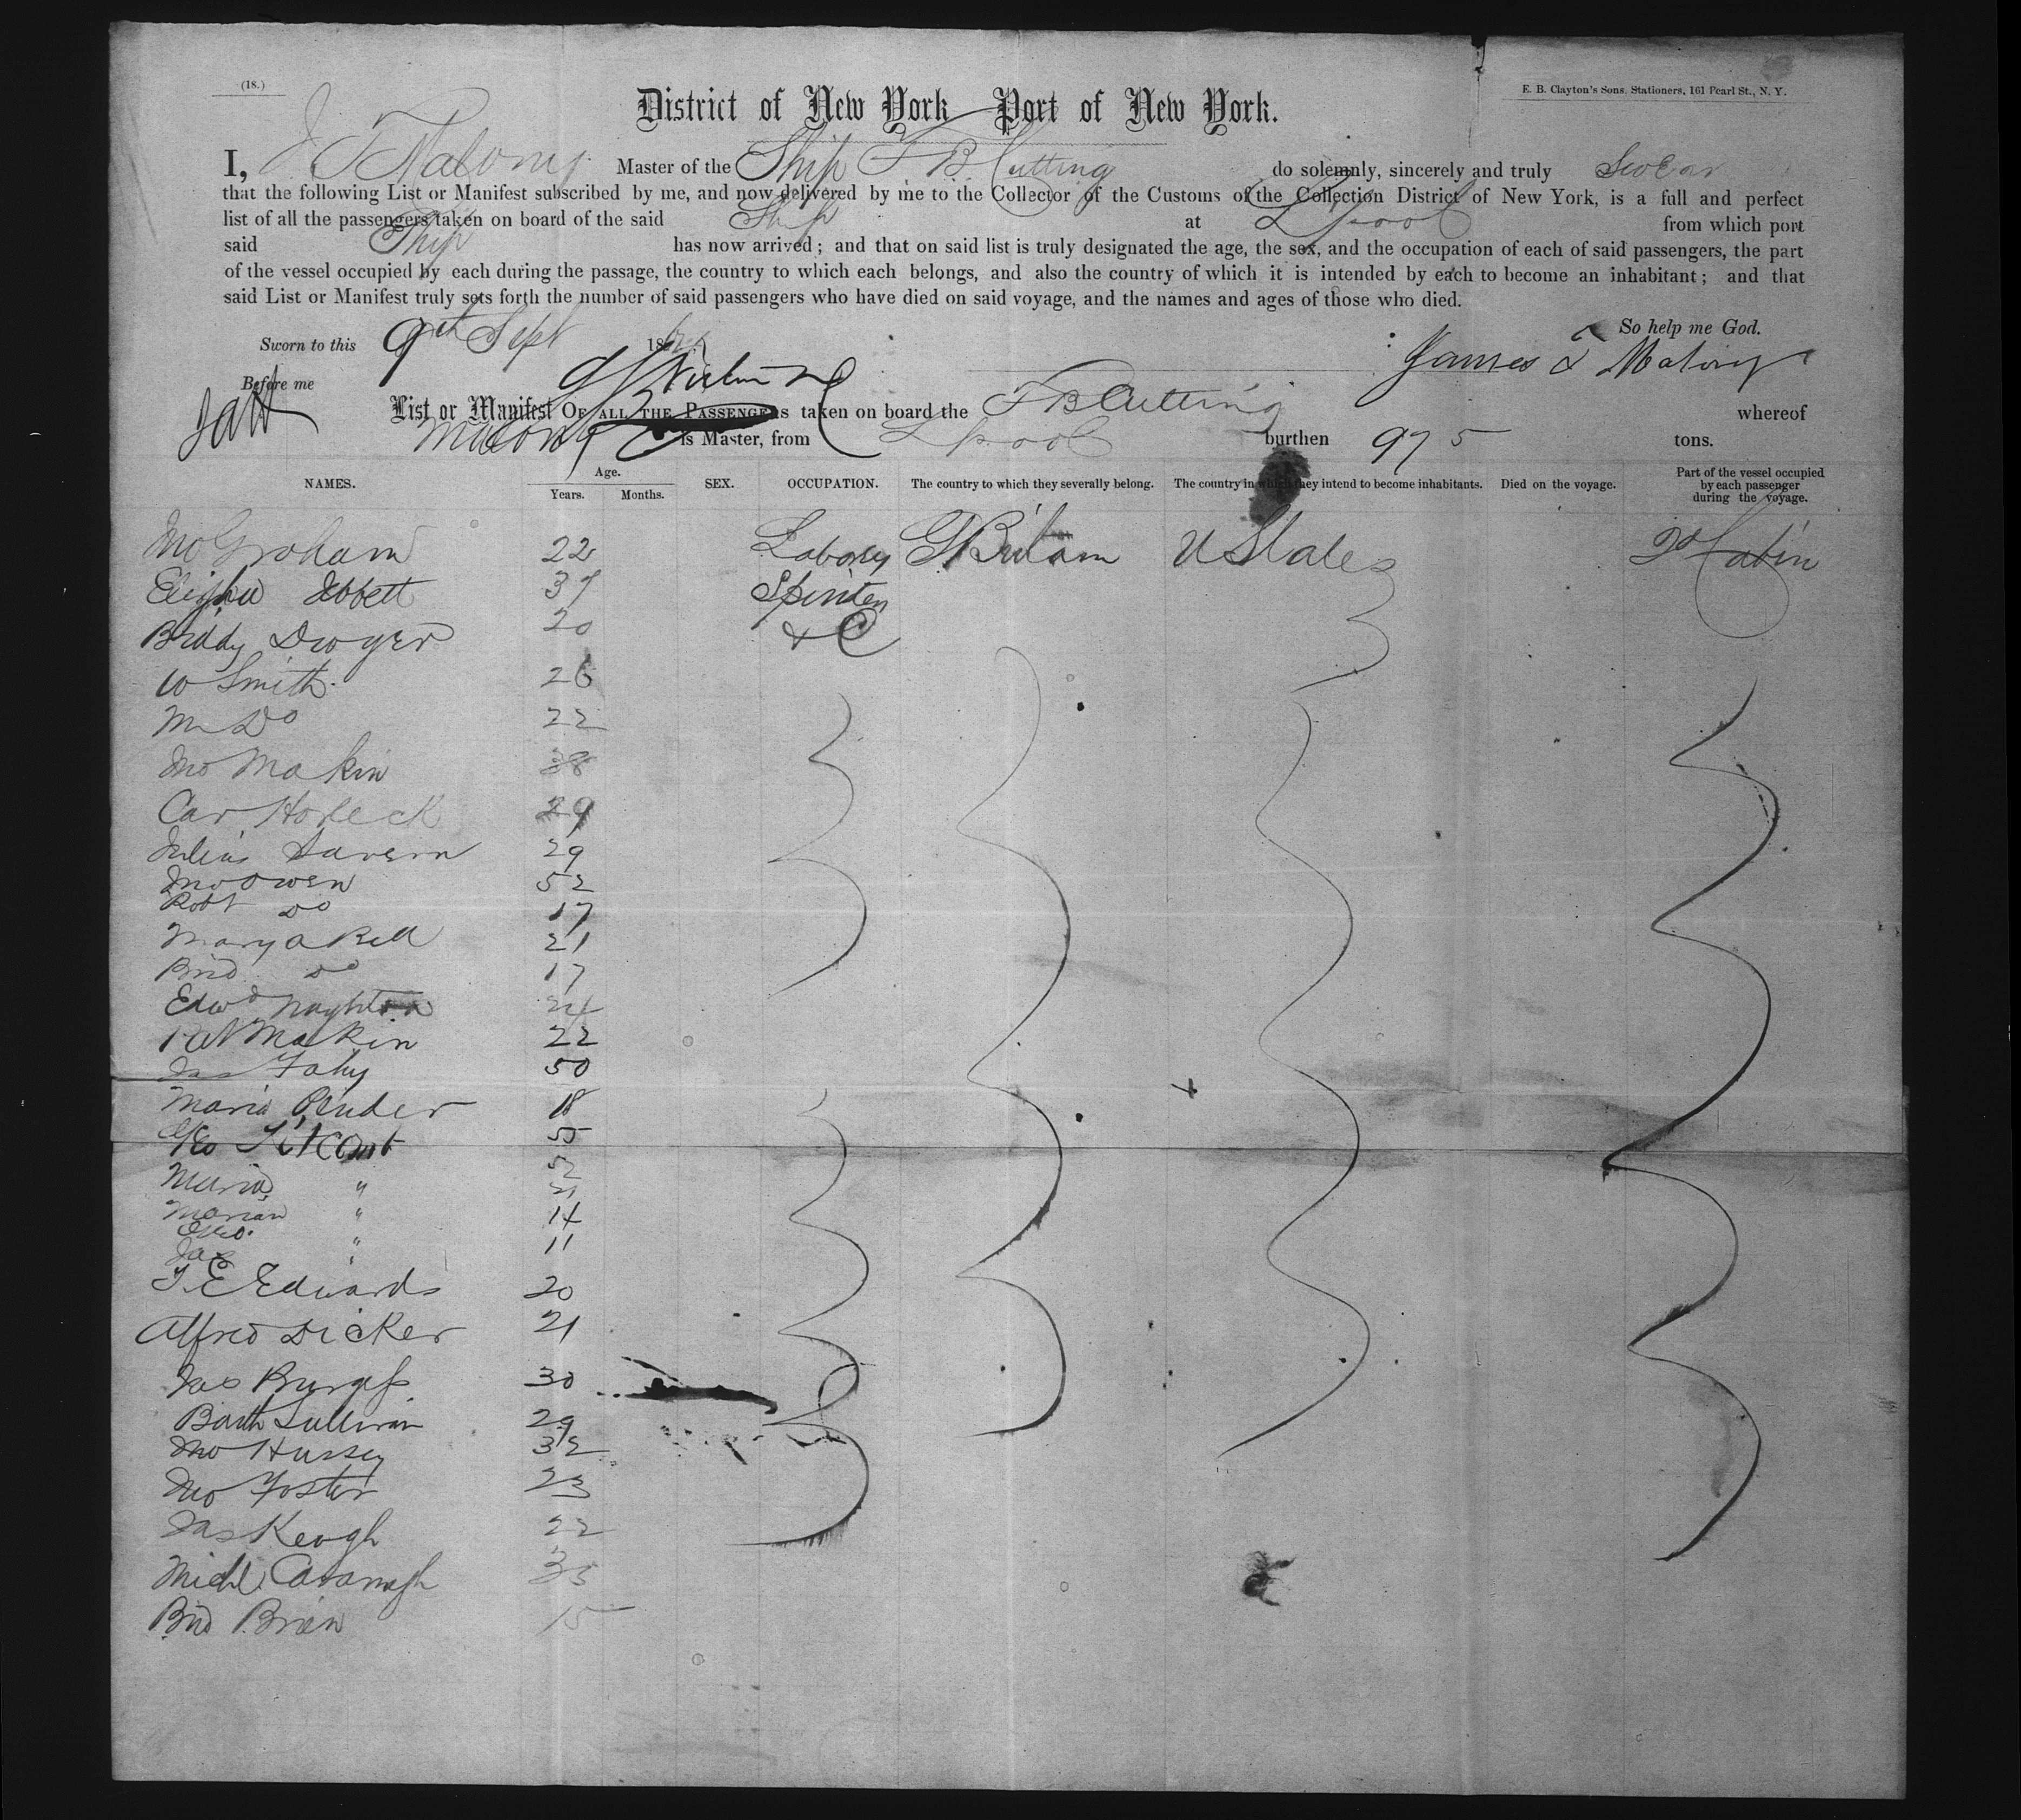 (18.)
District of New York Port of New York.
E. B. Clayton's Sons, Stationers, 161 Pearl St., N. Y.
I, J T Malony Master of the Ship F B Cutting do solemnly, sincerely and truly Swear
that the following List or Manifest subscribed by me, and now delivered by me to the Collector of the Customs of the Collection District of New York, is a full and perfect
list of all the passengers taken on board of the said Ship at Lpool from which port
said Ship has now arrived; and that on said list is truly designated the age, the sex, and the occupation of each of said passengers, the part
of the vessel occupied by each during the passage, the country to which each belongs, and also the country of which it is intended by each to become an inhabitant; and that
said List or Manifest truly sets forth the number of said passengers who have died on said voyage, and the names and ages of those who died.
So help me God.
Sworn to this 9th Sept 186
James T Malony
Before me
List or Manifest OF ALL THE PASSENGERS taken on board the F B Cutting whereof
Malony is Master, from Lpool burthen 975 tons.
NAMES. Age. Years. Months. SEX. OCCUPATION. The country to which they severally belong. The country in which they intend to become inhabitants. Died on the voyage. Part of the vessel occupied by each passenger during the voyage.
Jno Graham 22 Laborer G Britain U States 2d Cabin
Ebbett 37 Spinster
Briddy Dwyer 20 & C
W Smith 26
M Do 22
Jno Makin 38
Car Horeck 29
Julius 29
Jno Owen 52
Robt Do 17
Mary A Bell 21
Brid Do 17
Edwd Naghton 24
Pat Makin 22
Jas Fahy 50
Maria Pender 18
Geo Titcomb 55
Maria " 52
Marian " 21
Geo. " 14
Jas " 11
T. E Edwards 20
Alfred Dicker 21
Jas Burgess 30
Barth Sullivan 29
Jno Hussey 32
Jno Foster 23
Jas Keogh 22
Michl Cavanagh 35
Brid Brien 15